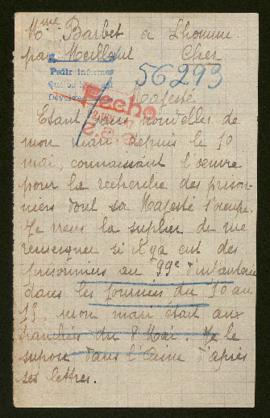 Mme Barbet à Lhomme
par Meillant Cher
Pedir informes
56293
Fecho
Majesté
Etant sans nouvelles de
mon mari depuis le 10
mai, connaissant l'œuvre
pour la recherche des prison-
niers dont sa Majesté s'occupe.
Je vous la suplie de me
renseigner si il y a eut des
prisonniers au 99e d'infanterie
dans les journées du 10 au
15, mon mari était aux
tranchées du 8 Mai. Je le
supose dans l'Aisne d'après
ses lettres.